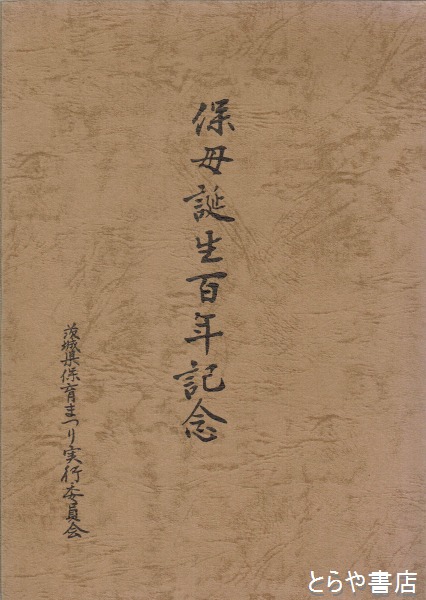 保母誕生百年記念
茨城県保育まつり実行委員会
とらや書店